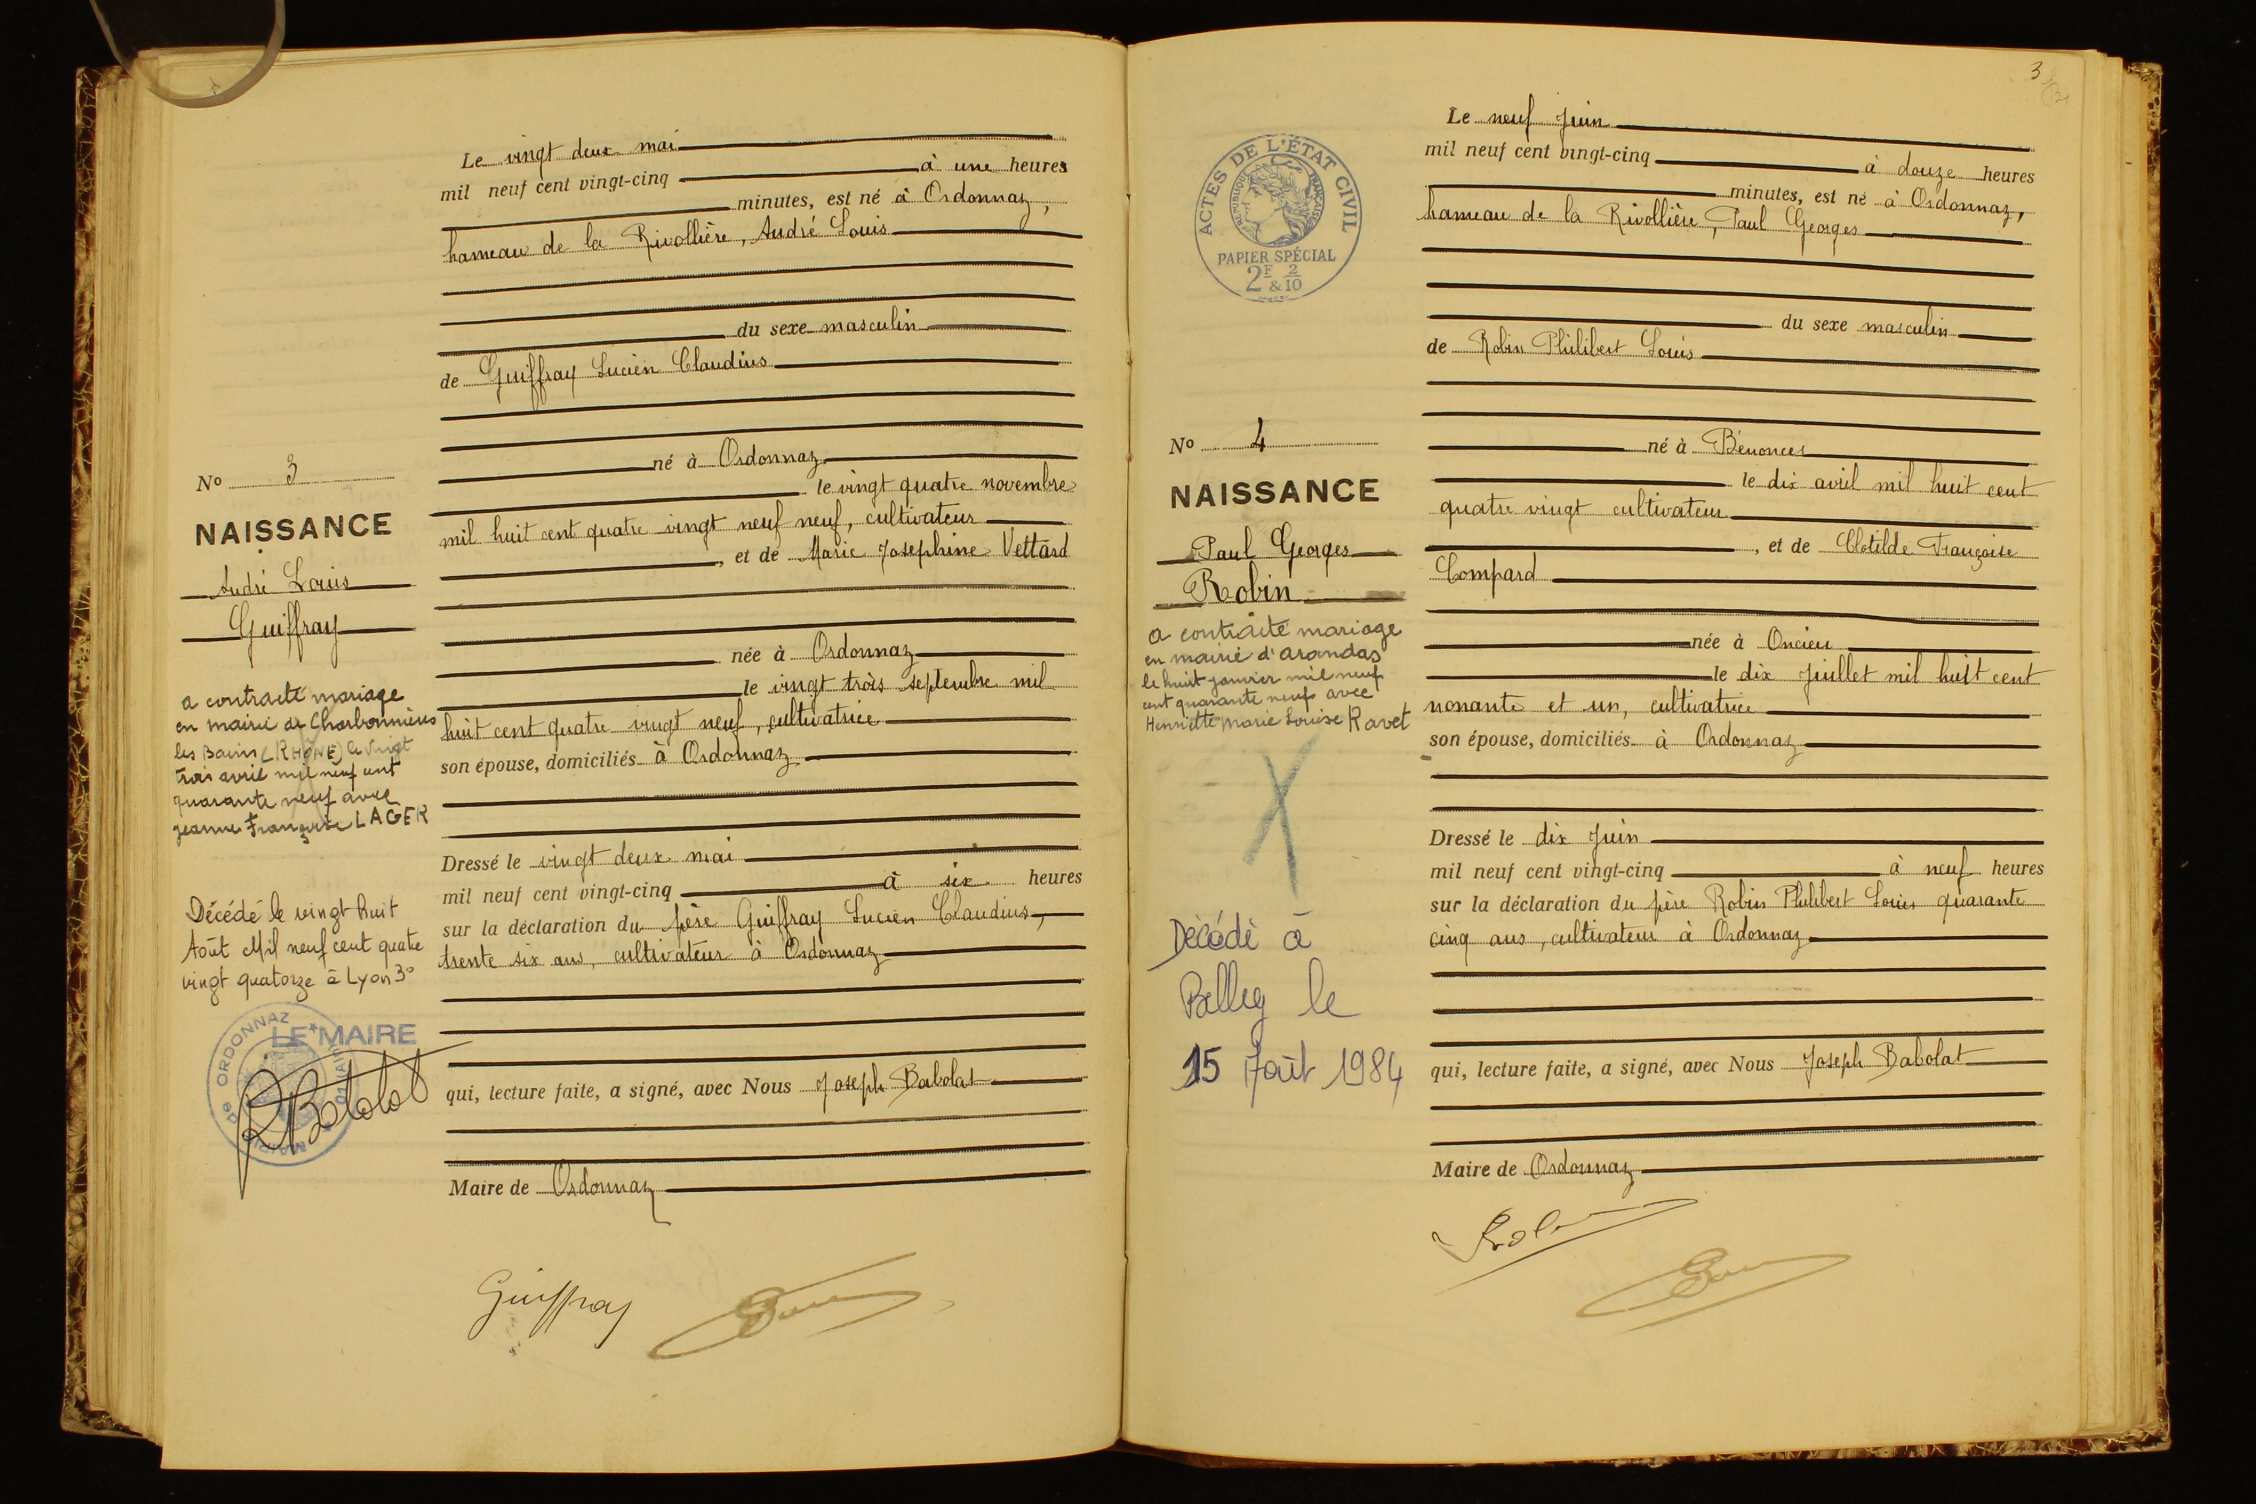 Le vingt deux mai
mil neuf cent vingt-cinq à une heures
minutes, est né à Ordonnaz,
hameau de la Rivollière, André Louis
du sexe masculin
de Guiffray Lucien Claudius
né à Ordonnaz
le vingt quatre novembre
mil huit cent quatre vingt neuf neuf, cultivateur
, et de Marie Josephine Vettard
née à Ordonnaz
le vingt trois septembre mil
huit cent quatre vingt neuf, cultivatrice
son épouse, domiciliés à Ordonnaz
Dressé le vingt deux mai
mil neuf cent vingt-cinq à six heures
sur la déclaration du père Guiffray Lucien Claudius,
trente six ans, cultivateur à Ordonnaz
qui, lecture faite, a signé, avec Nous Joseph Babolat
Maire de Ordonnaz
Guiffray
No 3
NAISSANCE
André Louis
Guiffray
a contracté mariage
en mairie de Charbonnières
les Bains (RHÔNE) le vingt
trois avril mil neuf cent
quarante neuf avec
Jeanne Françoise LAGER
Décédé le vingt huit
Août Mil neuf cent quatre
vingt quatorze à Lyon 3°
LE MAIRE
MAIRIE de ORDONNAZ
3
Le neuf Juin
mil neuf cent vingt-cinq à douze heures
minutes, est né à Ordonnaz,
hameau de la Rivollière, Paul Georges
du sexe masculin
de Robin Philibert Louis
né à Bénonces
le dix avril mil huit cent
quatre vingt cultivateur
, et de Clotilde Françoise
Compard
née à Oncieu
le dix Juillet mil huit cent
nonante et un, cultivatrice
son épouse, domiciliés à Ordonnaz
Dressé le dix Juin
mil neuf cent vingt-cinq à neuf heures
sur la déclaration du père Robin Philibert Louis quarante
cinq ans, cultivateur à Ordonnaz
qui, lecture faite, a signé, avec Nous Joseph Babolat
Maire de Ordonnaz
Robin
ACTES DE L'ÉTAT CIVIL
RÉPUBLIQUE FRANÇAISE
PAPIER SPÉCIAL
2F & 2/10
No 4
NAISSANCE
Paul Georges
Robin
a contracté mariage
en mairie d'Arandas
le huit janvier mil neuf
cent quarante neuf avec
Henriette Marie Louise Ravet
Décédé à
Belley le
15 Août 1984